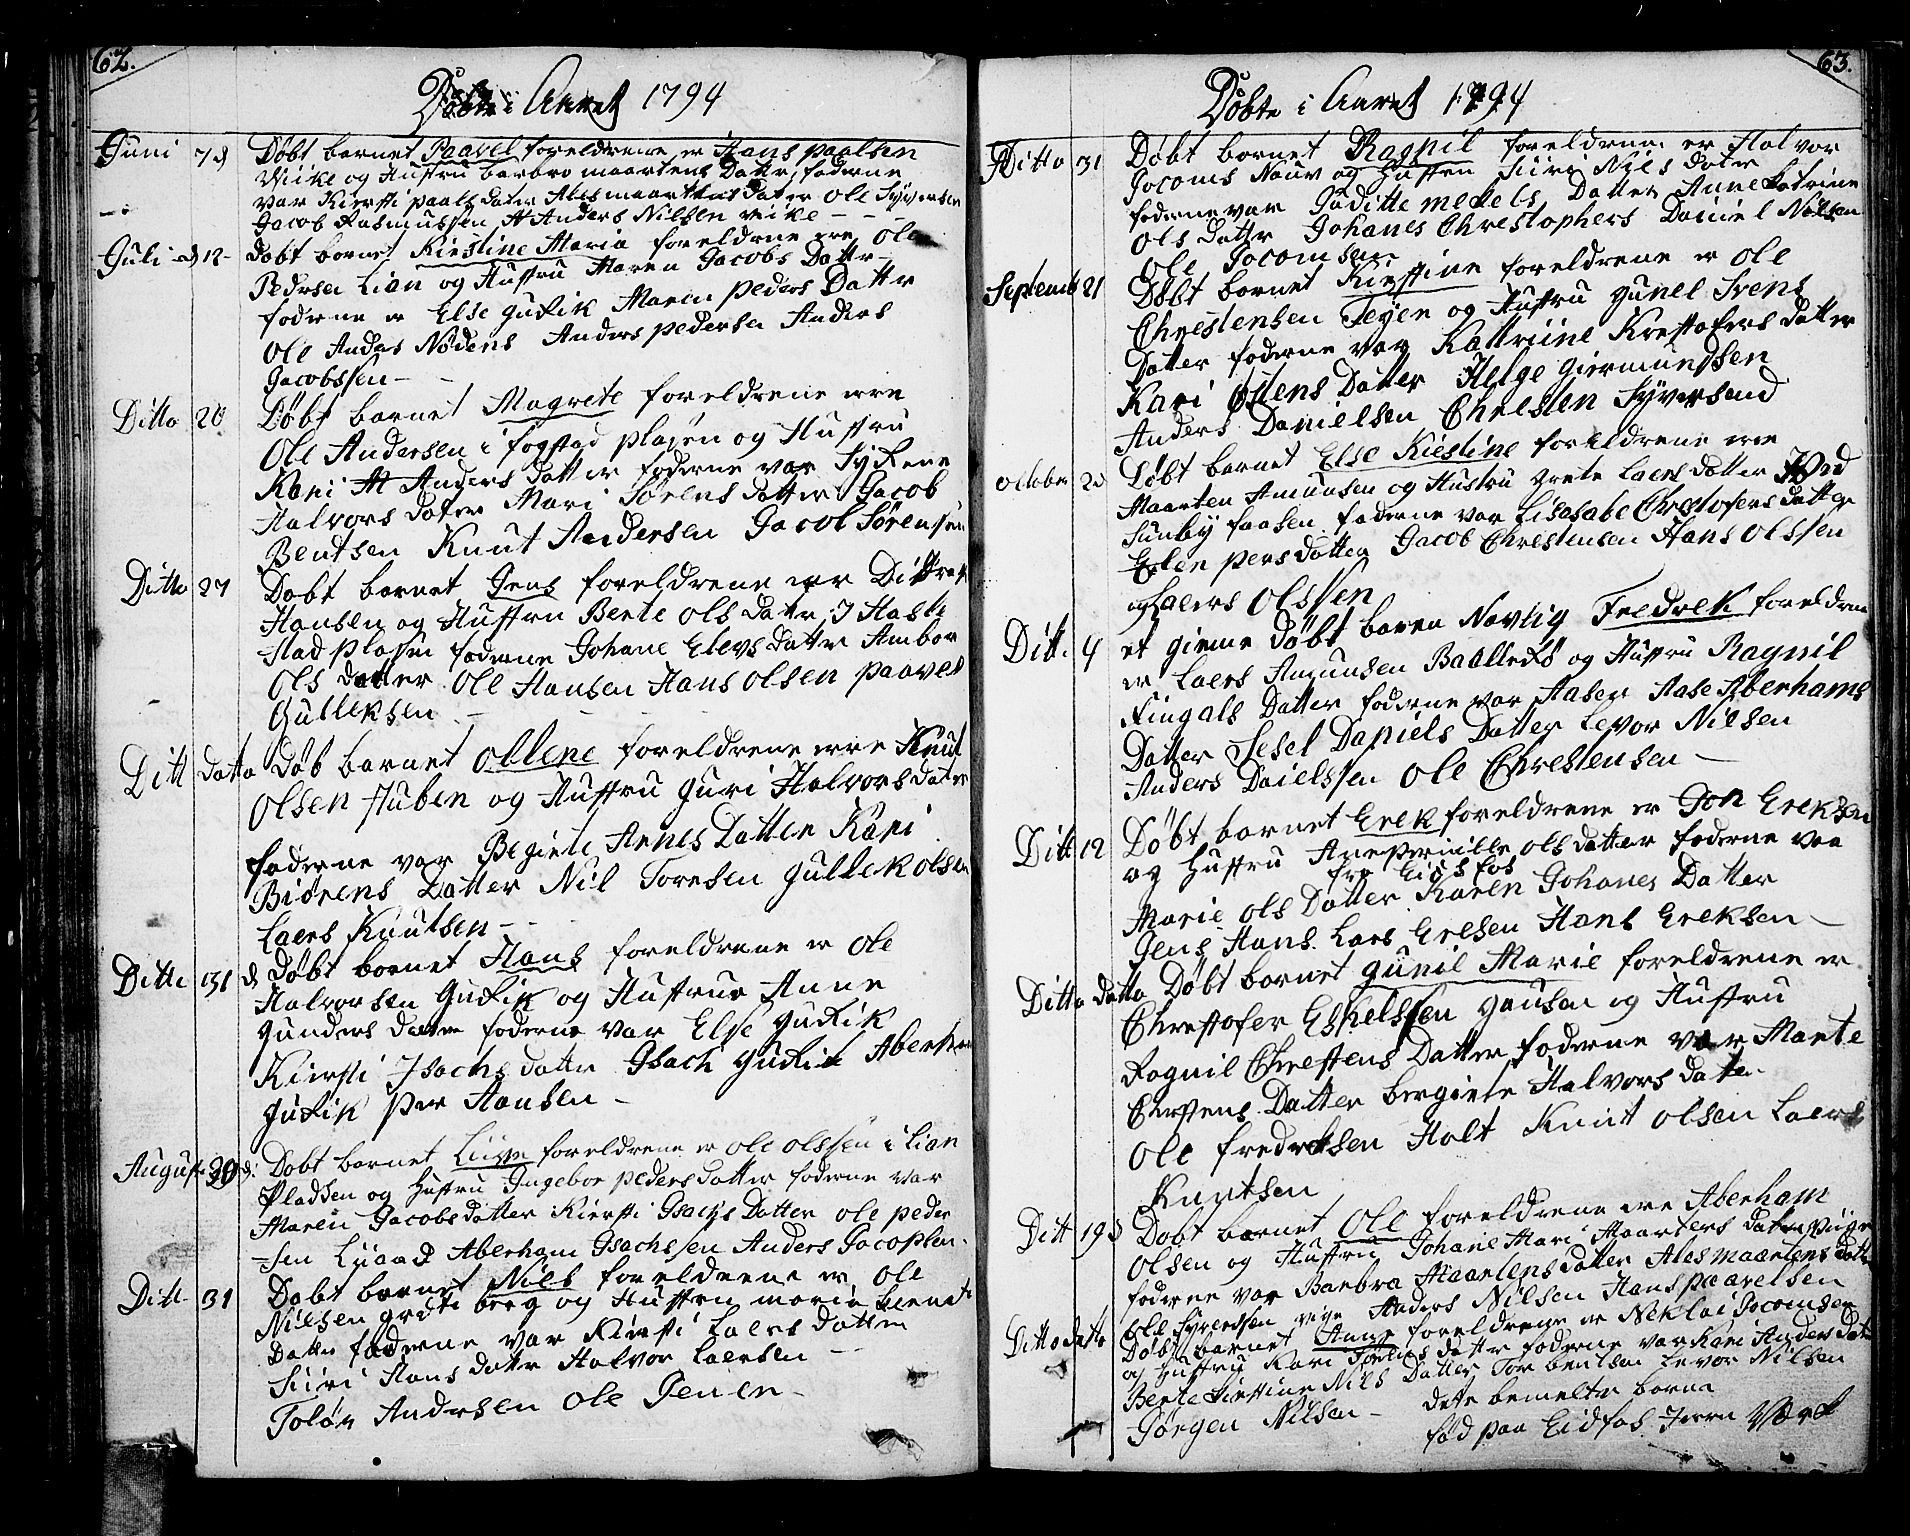 62.
Döbte i Aaret 1794
Juni 7d Døbt barnet Paavel foreldrene er Hans paalsen
Viike og Hustru barbro maartens Datter, faderne
var Kiersti paals dater Ales maartens Dater Ole Syversen
Jacob Rasmussen At Anders Nilsen vike - - -
Juli d 12 - døbt barnet Kiestine Maria foreldrene ere Ole
Pedersen Lian og Hustru Maren Jacobs Datter
foderne er Else gurik Maren peders Datter
Ole Anders Nødens Anders pedersen Anders
Jacobssen -
Ditto 20 Døbt barnet Magrete foreldrene erre
Ole Andersen i fogstad plasen og Hustru
Kari At Anders datter foderne var Syrene
Halvors dater Mari Sørens datter Jacob
Bentsen Knut Andersen Jacob Sørensen
Ditto 27 Døbt barnet Jens foreldrene er Dittrek
Hansen og Hustru Berte ols datter I Haste
stad plasen foderne Johane Elevs datter Ambor
Ols datter Ole Hansen Hans olsen paavel
Gulleksen -
Ditt datto Døb barnet Ollene foreldrene erre Knut
Olsen Huben og Hustru guri Halvors dater
foderne var Begiete Arnes Datter Kari
Biørens Datter Nil Toresen gullek olsen
Laers Knutsen -
Ditto 31 d Døbt barnet Hans foreldrene er Ole
Halvorsen Gurik og Hustrue Anne
gunders datter foderne var Else gurik
Kiersti Isachs datter Isach gurik Aberham
gurik per Hansen -
August 30 d: Døbt barnet Liisse foreldrene er ole olssen i Lian
Pladsen og Hustru Ingebor peders datter foderne var
Maren Jacobs datter Kiersti Isachs Datter ole peder
-sen Lijaad Aberham Isachssen Anders Jacopsen -
Ditt- 31 Døbt barnet Niels foreldrene er ole
Nielsen greti berg og Hustru maria bernts
Datter foderne var Kiersti Laers datter
Siri Hans datter Halvor Laersen -
Tolör Andersen Ole Jensen -
63.
Döbte i Aaret 1794
Ditto 31 Døbt barnet Ragnil foreldrene er Halvor
Jocoms Nouv og Hustru Siiri Niels dater
foderne var Juditte mekels Datter Anne Katrine
Ols datter Johanes Chrestophers Daniel Nilsen
Ole Jocomsen
September 21 Døbt barnet Kierstine foreldrene er Ole
Chrestensen Teyen og Hustru gunel Svens
Datter foderne var Kattriine Krestofers datter
Kari Østens Datter Helge giermunssen
Anders Danielsen Chresten Syversend
October 2d Døbt barnet Else Kiestine foreldrene ere
Maarten Amunsen og Hustru grete Laers datter Ved
Sunby saasen foderne var Lisabe Chrestofers datter
Eelen pers datter Jacob Chrestensen Hans Olssen
og Laers Olssen
Ditt. 4 et gieme døbt baren Navlig Fredrek foreldrene
er Laers Amunsen Baallerø og Hustru Ragnil
Fingals Datter foderne var Aasen Aase Aberhams
Datter Sesel Daniels Datter Levor Nilsen
Anders Daielssen Ole Chrestensen -
Ditt 12 Døbt barnet Erek foreldrene er Jon Ereksen
og Hustru Anepernille ols datter foderne vaa
fra Eids fos
Marie ols Datter Karen Johanes Datter
Jens Hans. Lars Eresen Hans Ereksen -
Ditto datto Døbt barnet gunil Marie foreldrene er
Chrestofer Eskelssen gausen og Hustru
Ragnil Chrestens Datter foderne var Marte
Cherstens Datter bergiete Halvors datter
Ole fredreksen Holt Knut olsen Laers
Knutsen
Ditt 19 d Døbt barnet Ole foreldrene ere Aberham
Olsen og Hustru Johane Mari Maartens dater viige
foderne var Barbra Maartens datter Ales maartens datter
Ole Syversen vige Anders Nilsen Hans paavelsen
Ditto dato Døbt barnet Anne foreldrene er Neklai Jocomsen
og Hustru Kari Torens datter foderne var Kari Anders Dater
Berte Kierstine Niels Datter Tor bentsen Levor Nilsen
Jørgen Nilsen - dette bemelte borne
fød paa Eidfos Jern Værk